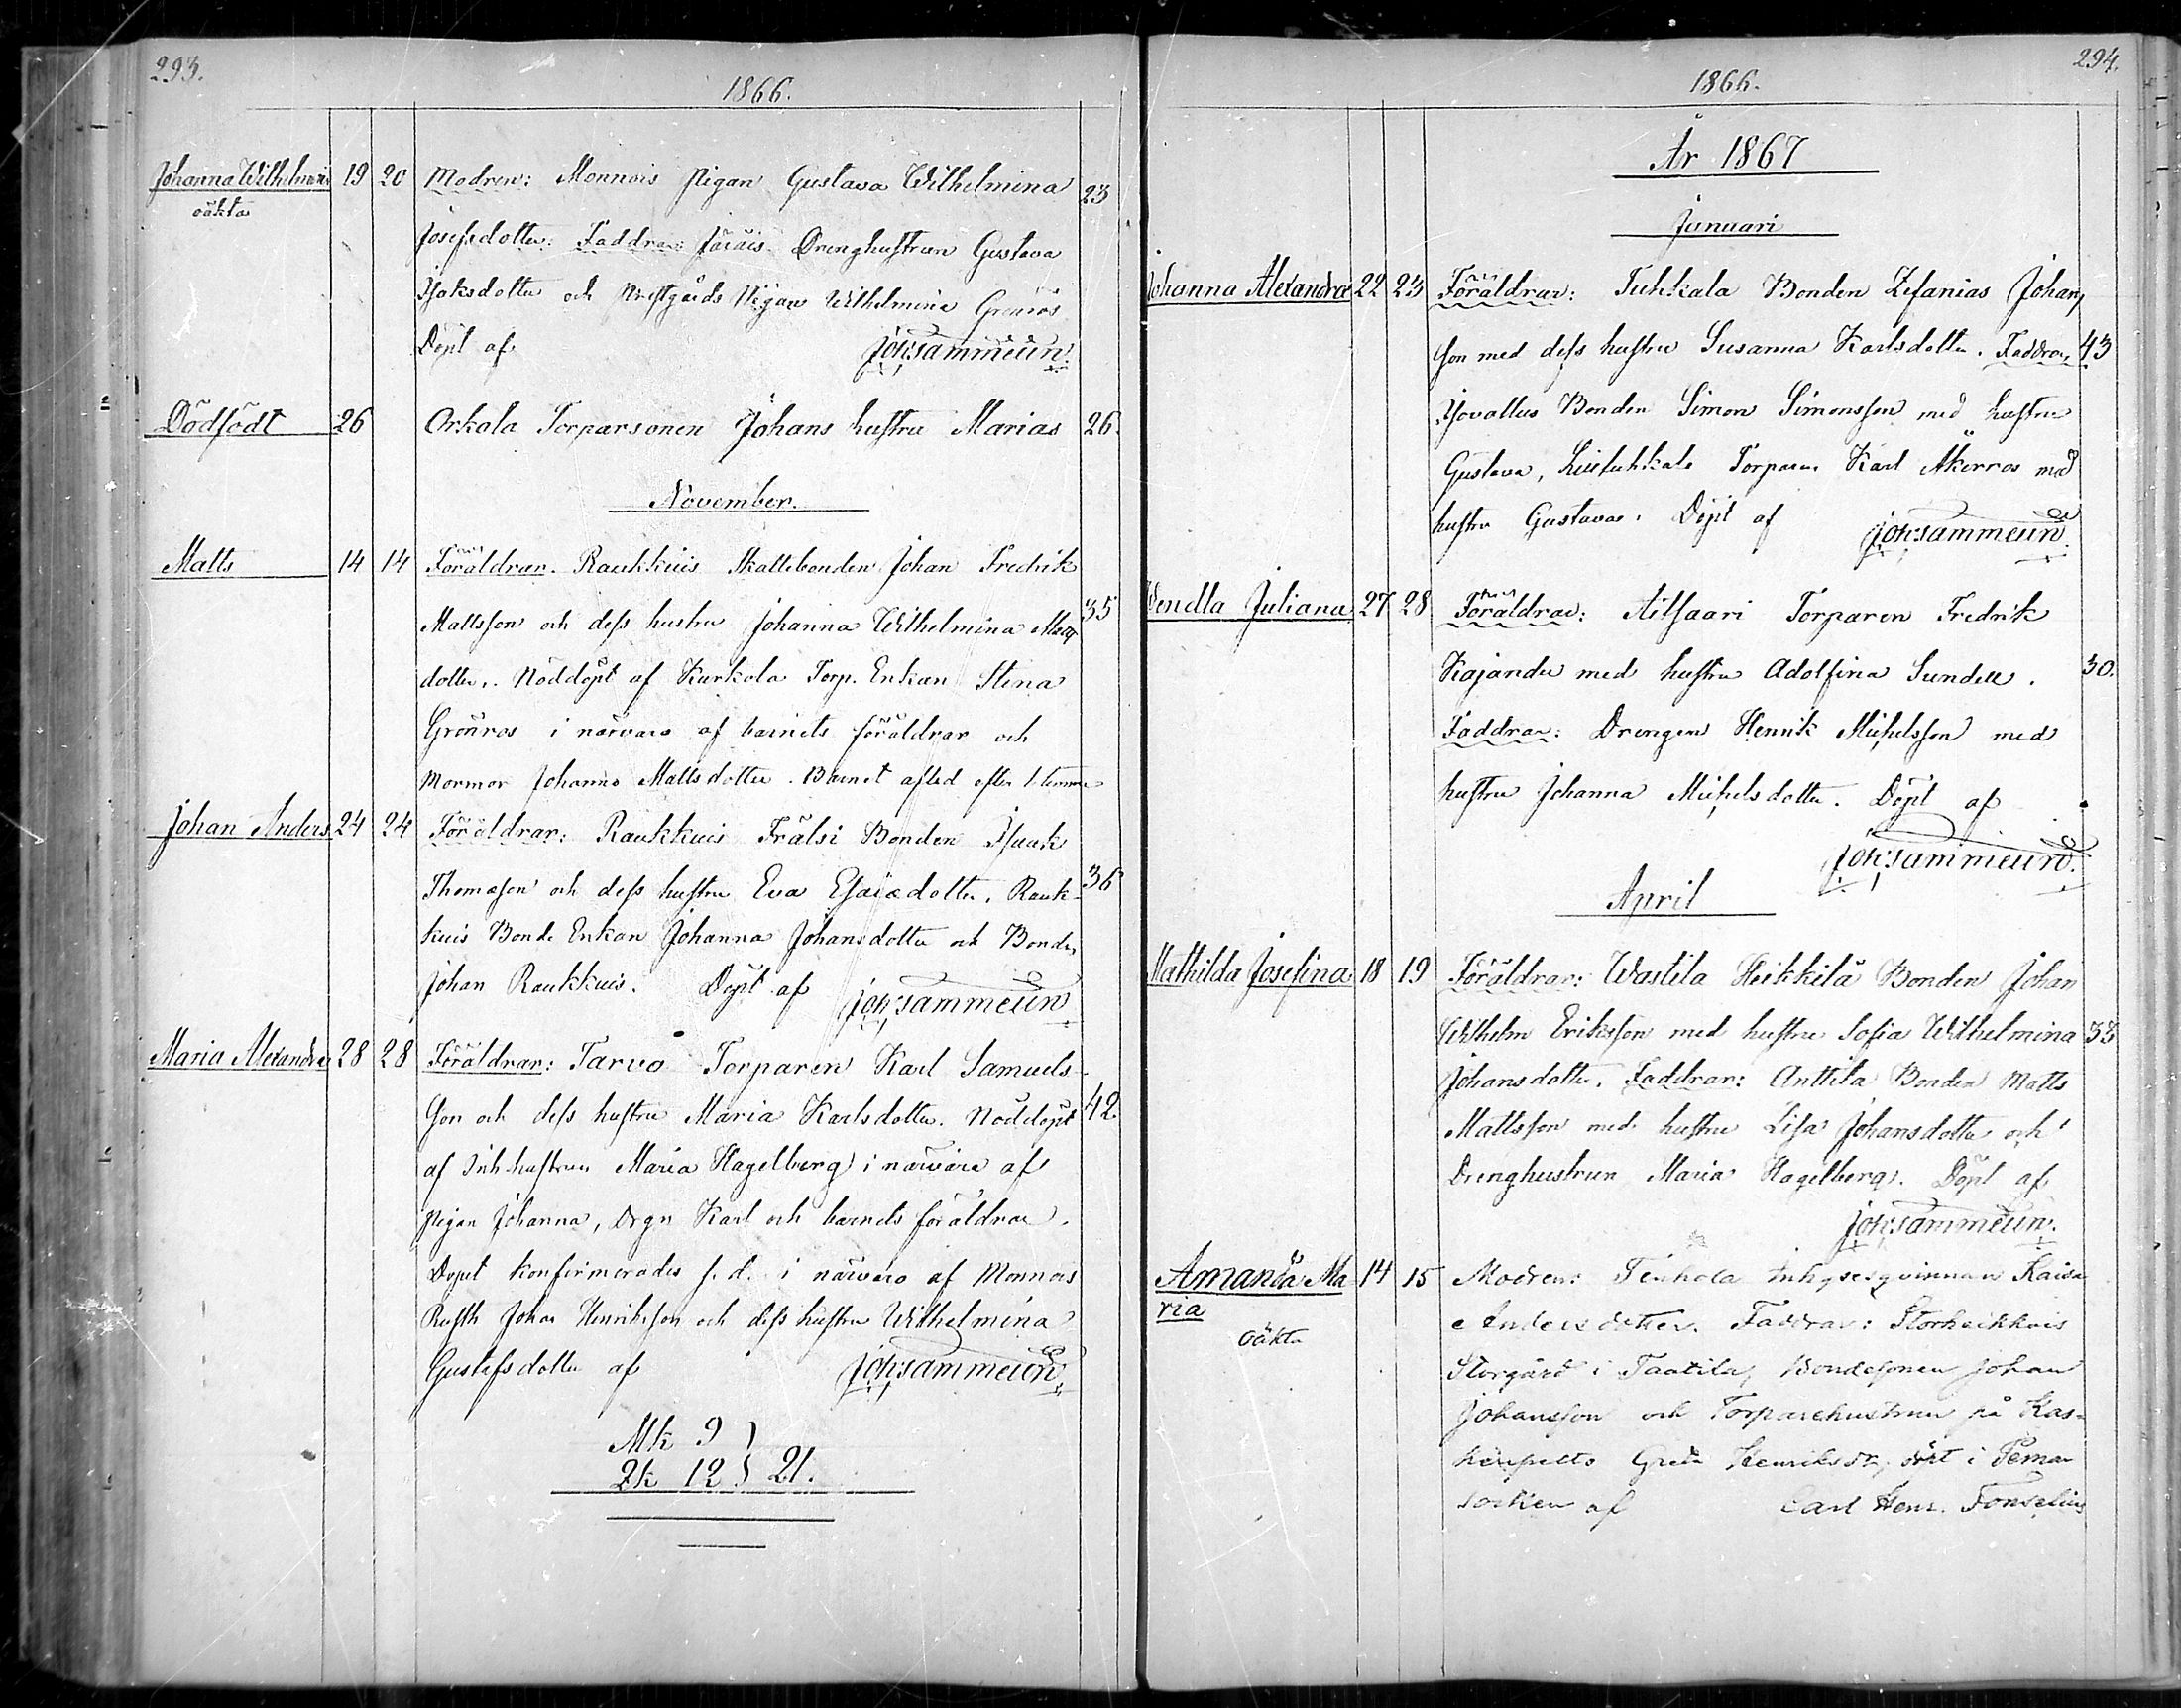 293.
1866.
Johanna Wilhelmina 19 20 Modren: Monnois pigan Gustava Wilhelmina 23
oäkta
Josefsdotter: Faddrar: Drenghustrun Gustava
Isaksdotter och Prestgårds Pigan Wilhelmina Grönros
Döpt af Joh: Sammelin.
Dödfödt 26 Orkola Torparsonen Johans hustru Marias 26.
November.
Matts 14 14 Föräldrar. Raukkuis Skattebonden Johan Fredrik
Mattsson och dess hustru Johanna Wilhelmina Matts 35
dotter. Nöddöpt af Karkola Torp. Enkan Stina
Grönros i närvaro af barnets föräldrar och
Mormor Johanna Mattsdotter. Barnet afled efter 1 timme
Johan Anders 24 24 Föräldrar: Raukkuis Frälsi Bonden Isaak
Thomasson och dess hustru Eva Esaiædotter. Rauk- 36
kuis Bonde Enkan Johanna Johansdotter och Bonden
Johan Raukkuis. Döpt af Joh: Sammelin
Maria Alexandra 28 28 Föräldrar: Tarvo Torparen Karl Samuels-
son och dess hustru Maria Karlsdotter. Nöddöpt 42.
af Inh. hustrun Maria Hagelberg i närvaro af
pigan Johanna, Drgn Karl och barnets föräldrar.
Dopet konfirmerades s. d. i närvaro af Monnois
Rusth Johan Henriksson och dess hustru Wilhelmina
Gustafsdotter af Joh: Sammelin
Mk 9 }
Qk 12 } 21.
294.
1866.
År 1867
Januari
Johanna Alexandra 22 23 Föräldrar: Tuhkala Bonden Zefanias Johans
son med dess hustru Susanna Karlsdotter. Faddrar, 43
Isovallus Bonden Simon Simonsson med hustru
Gustava, Torparen Karl Åkerros med
hustru Gustava. Döpt af Joh: Sammelin
Vendla Juliana 27 28 Föräldrar: Aitsaari Torparen Fredrik
Kajander med hustru Adolfina Sundell. 30.
Faddrar: Drengen Henrik Michelsson med
hustru Johanna Michelsdotter. Döpt af
Joh: Sammelin.
April
Mathilda Josefina 18 19 Föräldrar: Wastila Heikkilä Bonden Johan
Wilhelm Eriksson med hustru Sofia Wilhelmina 33
Johansdotter. Faddrar: Anttila Bonden Matts
Mattsson med hustru Lisa Johansdotter och
Drenghustrun Maria Hagelberg. Döpt af
Joh: Sammelin.
Amanda Ma 14 15 Modren: Tenhola Inhysesqvinnan Kaisa
ria
oäkta
Andersdotter. Faddrar: Storheikkois
Storgård i Taatila, Bondesonen Johan
Johansson och Torparehustrun på Kas-
Greta Henriksdr, döpt i Pemar
socken af Carl Henr. Fonselius